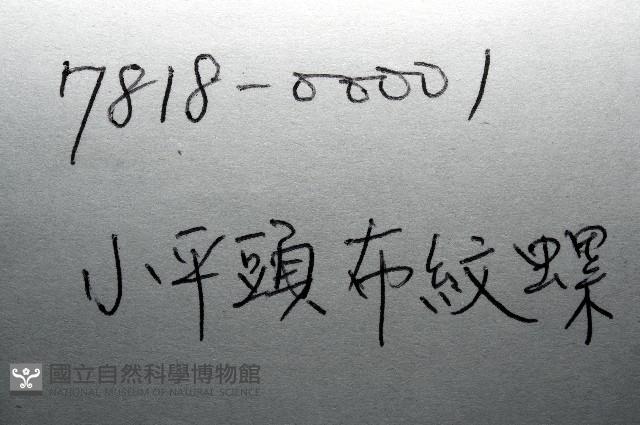 7818-00001
小平頭布紋螺
國立自然科學博物館
NATIONAL MUSEUM OF NATURAL SCIENCE